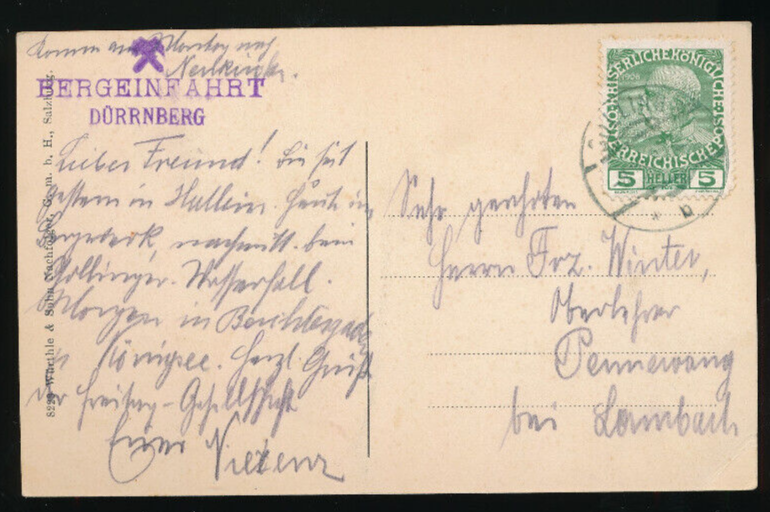 Komm am Montag nach
Neukirchen.
BERGEINFAHRT
DÜRRNBERG
Lieber Freund! Bin seit
gestern in Hallein. Heute im
Bergwerk, nachmitt. beim
Gollinger-Wasserfall.
Morgen in Berchtesgaden
Königsee. Herzl. Gruß
der Freitag-Gesellschaft
Euer
8229 Würthle & Sohn Nachfolger, G. m. b. H., Salzburg.
KAISERLICHE KÖNIGLICHE
ÖSTERREICHISCHE POST
1908
5 HELLER 5
b
Sehr geehrten
Herrn Frz. Winter,
Oberlehrer
Pennewang
bei Lambach